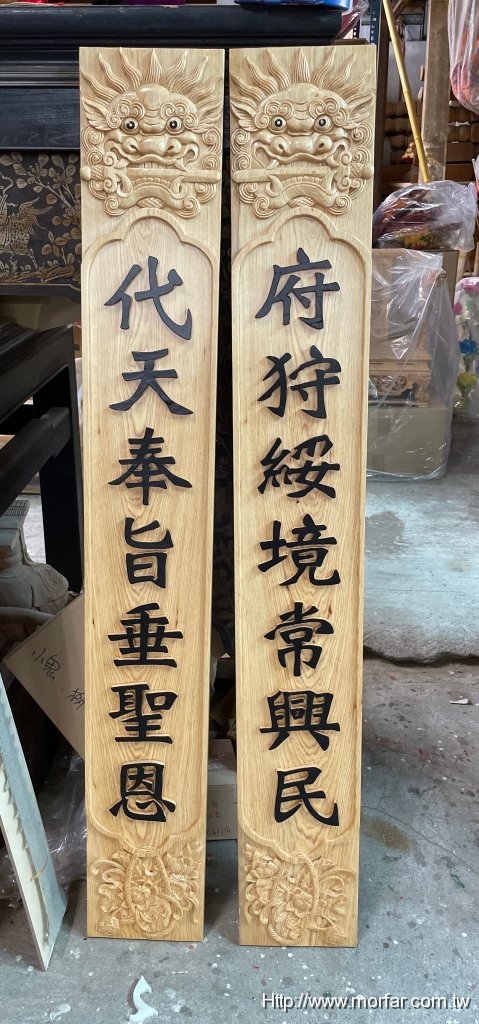 府狩綏境常興民
代天奉旨垂聖恩
小鬼
Http://www.morfar.com.tw